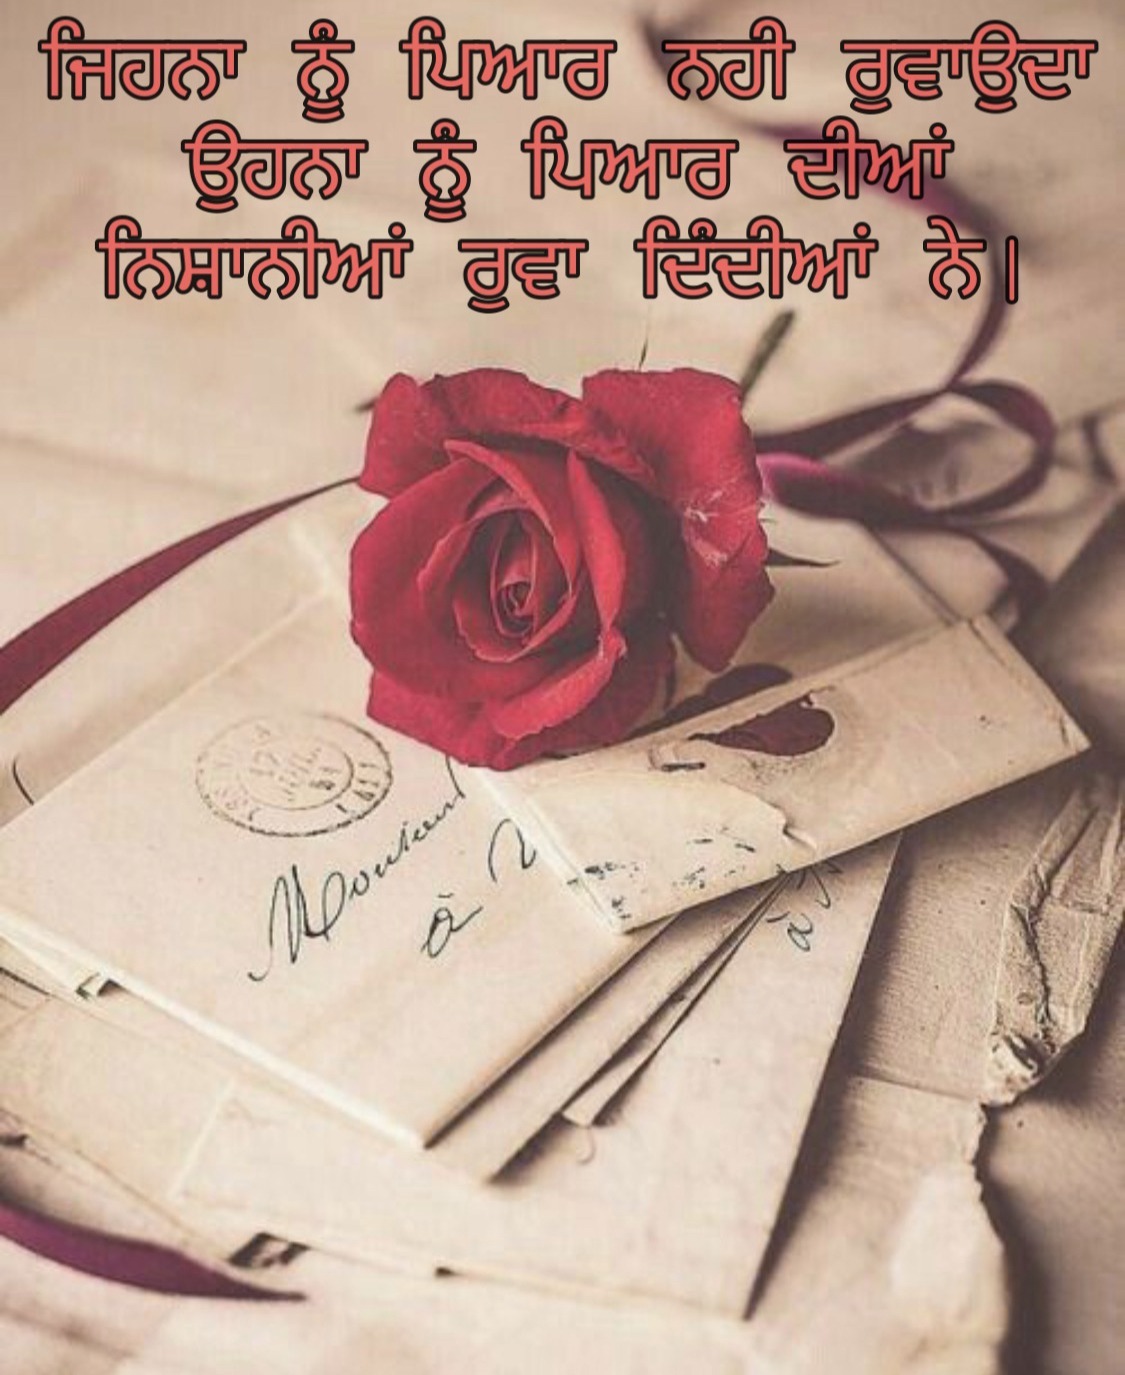 ਜਿਹਨਾ ਨੂੰ ਪਿਆਰ ਨਹੀ ਰੁਵਾਉਦਾ
ਉਹਨਾ ਨੂੰ ਪਿਆਰ ਦੀਆਂ
ਨਿਸ਼ਾਨੀਆਂ ਰੁਵਾ ਦਿੰਦੀਆਂ ਨੇ।
à
à